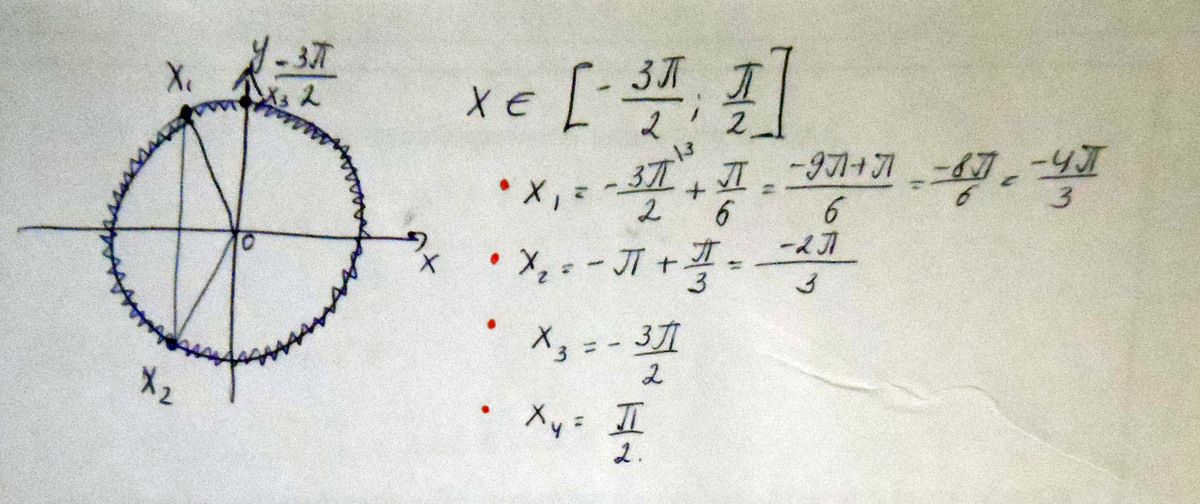 y -3π/2
x₁
x₃
0
x
x₂
x ∈ [-3π/2; π/2]
• x₁ = -3π/2 \3 + π/6 = -9π+π/6 = -8π/6 = -4π/3
• x₂ = -π + π/3 = -2π/3
• x₃ = -3π/2
• x₄ = π/2.